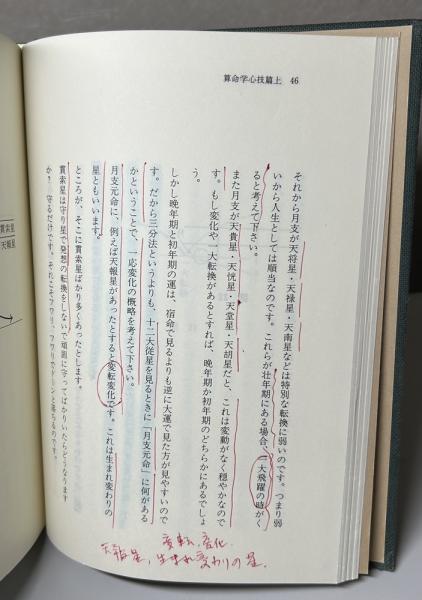 算命学心技篇上 46
それから月支が天将星・天禄星・天南星などは特別な転換に弱いのです。つまり弱
いから人生としては順当なのです。これらが壮年期にある場合、一大飛躍の時がく
ると考えて下さい。
また月支が天貴星・天恍星・天堂星・天胡星だと、これは変動がなく穏やかなので
す。もし変化や一大転換があるとすれば、晩年期か初年期のどちらかにあるでしょ
う。
しかし晩年期と初年期の運は、宿命で見るよりも逆に大運で見た方が見やすいので
す。だから三分法というよりも、十二大従星を見るときに「月支元命」に何がある
かということで、一応変化の概略を考えて下さい。
月支元命に、例えば天報星があったとすると変転変化です。これは生まれ変わりの
星ともいいます。
ところが、そこに貫索星ばかり多くあったとします。
貫索星は守り星で発想の転換をしないで頑固に守ってばかりいたらどうなります
か？ 守るだけです。それこそフワリ、フワリでドーンと落ちるのです。
貫索星
天報星
変転、変化
天報星、生まれ変わりの星、